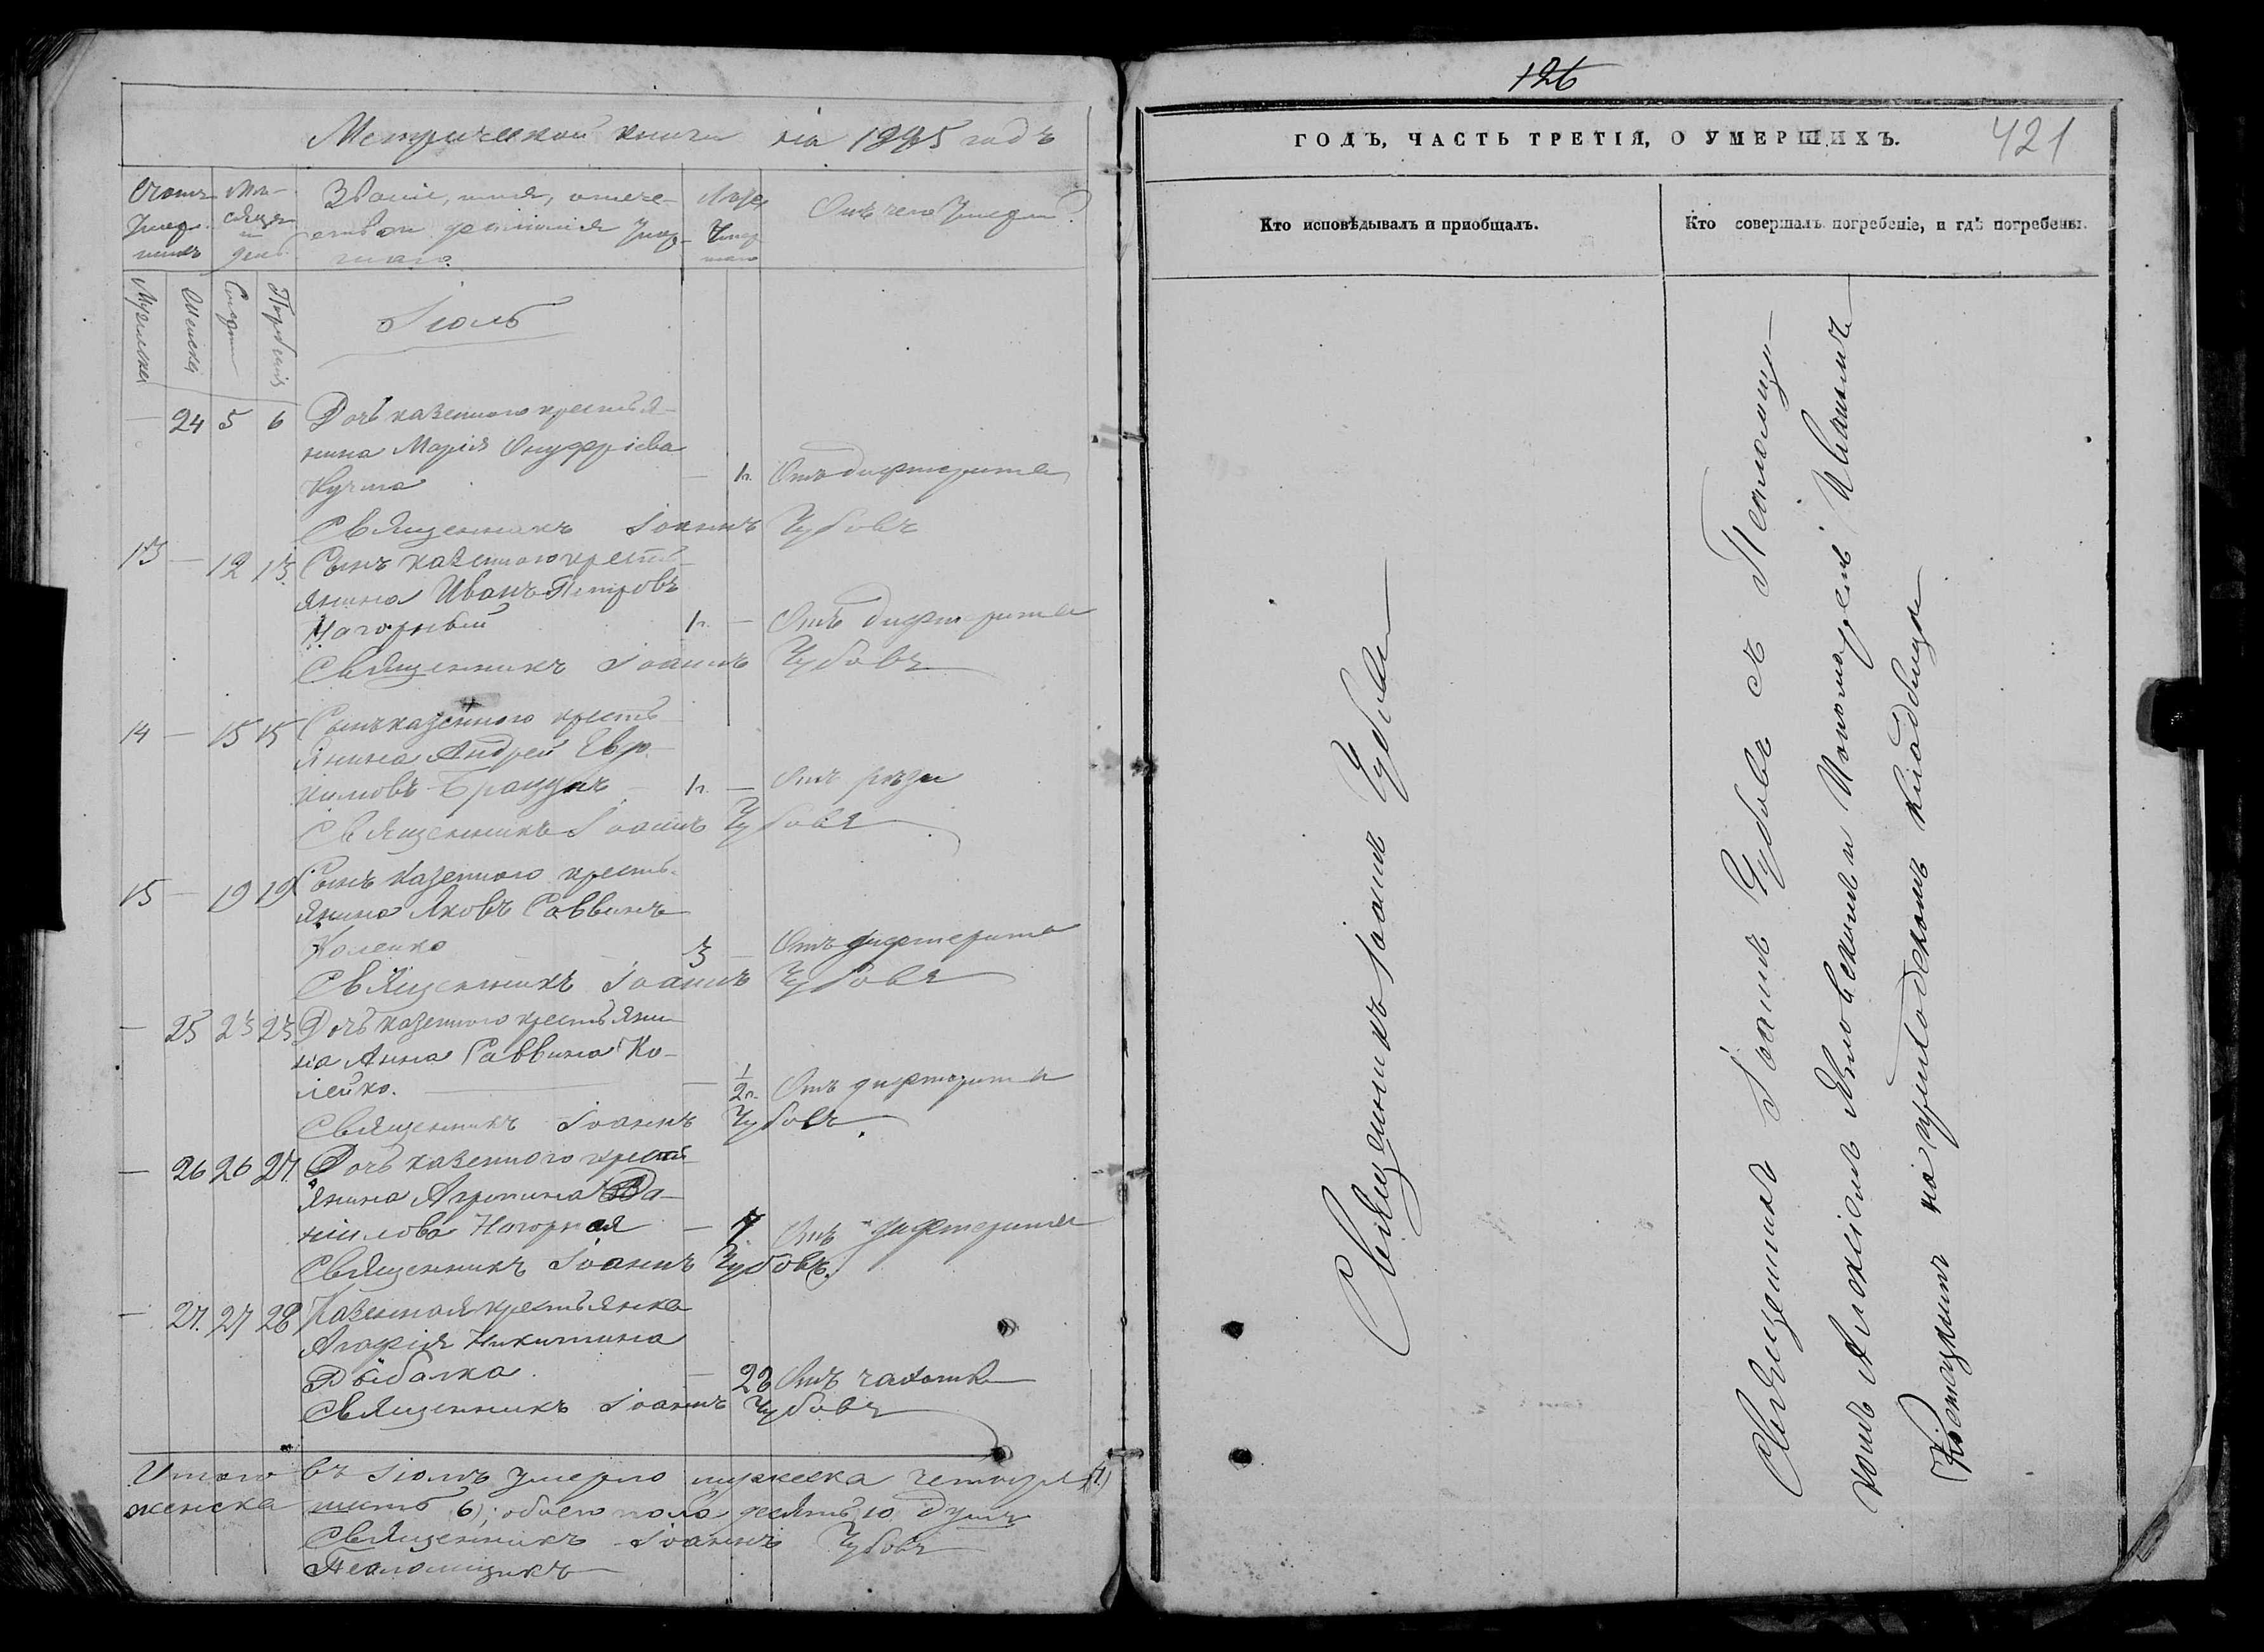 Метрической книги на 1885 годъ
Счотъ умершихъ
Мѣсяцъ и день
Званіе, имя, отечество и фамилія умершаго.
Лѣта умершаго
Отъ чего умерли?
Мужеска
Женска
Смерти
Погребенія
Іюль
— 24 5 6 Дочь казенного крестья-
нина Марія Онуфріева
Кучма — 1 г. Отъ дифтерита
Священникъ Іоаннъ Чубовъ
13 — 12 13 Сынъ казенного кресть-
янина Иванъ Петровъ
Нагорный 1 г. — Отъ дифтерита
Священникъ Іоаннъ Чубовъ
14 — 15 15 Сынъ казенного кресть-
янина Андрей Евѳ-
имовъ 1 г. — Отъ
Священникъ Іоаннъ Чубовъ
15 — 19 19 Сынъ казенного кресть-
янина Яковъ Саввинъ
Колейко 3 — Отъ дифтерита
Священникъ Іоаннъ Чубовъ
— 25 23 23 Дочь казенного крестьяни-
на Анна Саввина Ко-
лейко. — 1/2 г. Отъ дифтерита
Священникъ Іоаннъ Чубовъ
— 26 26 27 Дочь казенного кресть-
янина Агрипина Да-
ніилова Нагорная — 7 Отъ дифтерита
Священникъ Іоаннъ Чубовъ
— 27. 27 28 Казенная крестьянка
Агафія Никитина
Рыбалка. — 28 Отъ чахотки
Священникъ Іоаннъ Чубовъ
Итого въ Іюлѣ умерло мужеска четыре (4)
женска шесть 6); обоего пола десять 10 душъ
Священникъ Іоаннъ Чубовъ
Псаломщикъ
126
ГОДЪ, ЧАСТЬ ТРЕТІЯ, О УМЕРШИХЪ.
421
Кто исповѣдывалъ и приобщалъ.
Кто совершалъ погребеніе, и гдѣ погребены.
Священникъ Іоаннъ Чубовъ
Священникъ Іоаннъ Чубовъ съ Псаломщи-
комъ Алексіемъ и
на приходскомъ кладбищѣ